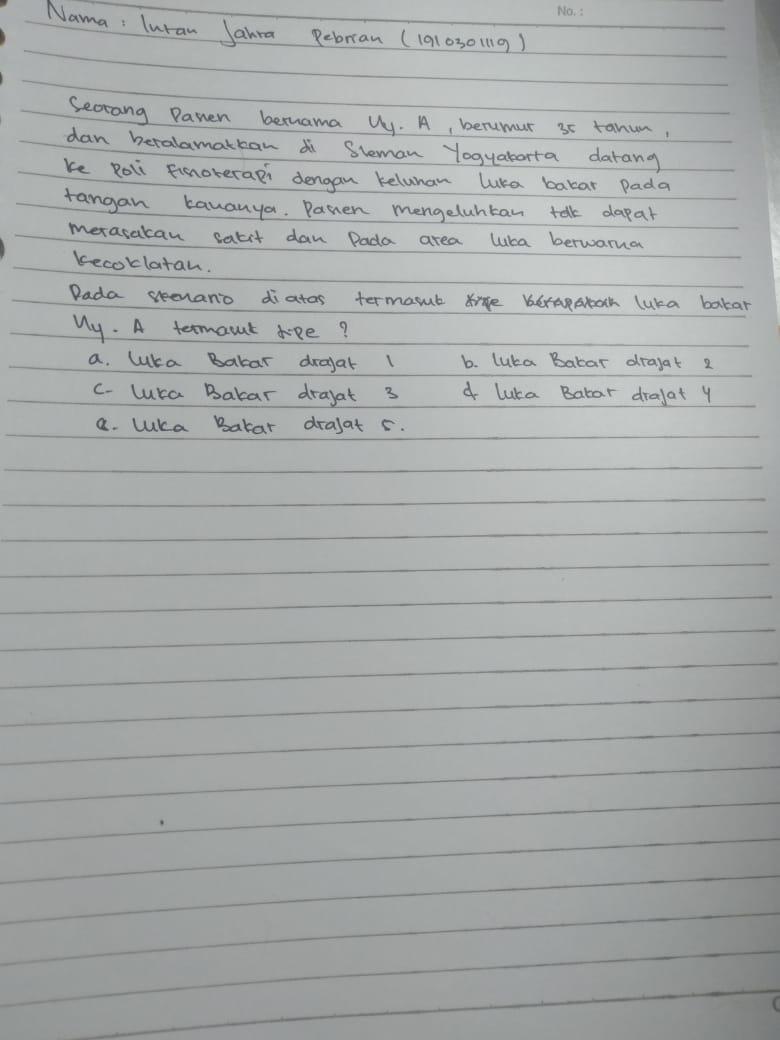 No.:
Nama : Intan Jahra Pebrian (1910301119)
Seorang Pasien bernama Ny. A, berumur 35 tahun,
dan beralamatkan di Sleman Yogyakarta datang
ke Poli Fisioterapi dengan keluhan luka bakar pada
tangan kananya. Pasien mengeluhkan tdk dapat
merasakan sakit dan Pada area luka berwarna
kecoklatan.
Pada skenario diatas termasuk luka bakar
Ny. A termasuk tipe ?
a. luka Bakar drajat 1 b. luka Bakar drajat 2
c. luka Bakar drajat 3 d luka Bakar drajat 4
e. luka Bakar drajat 5.